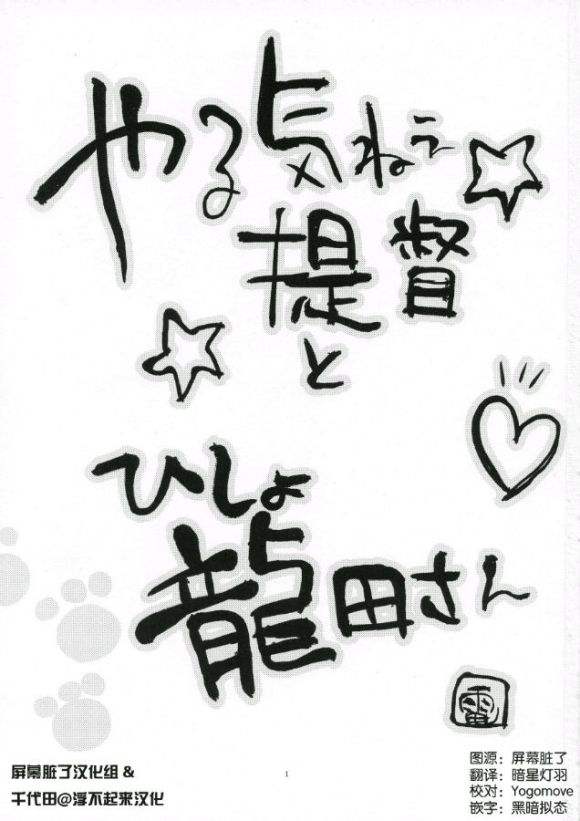 やる気ねぇ
提督
と
ひしょ
龍田さん
屏幕脏了汉化组 &
千代田@浮不起来汉化
1
图源：屏幕脏了
翻译：暗星灯羽
校对：Yogomove
嵌字：黑暗拟态